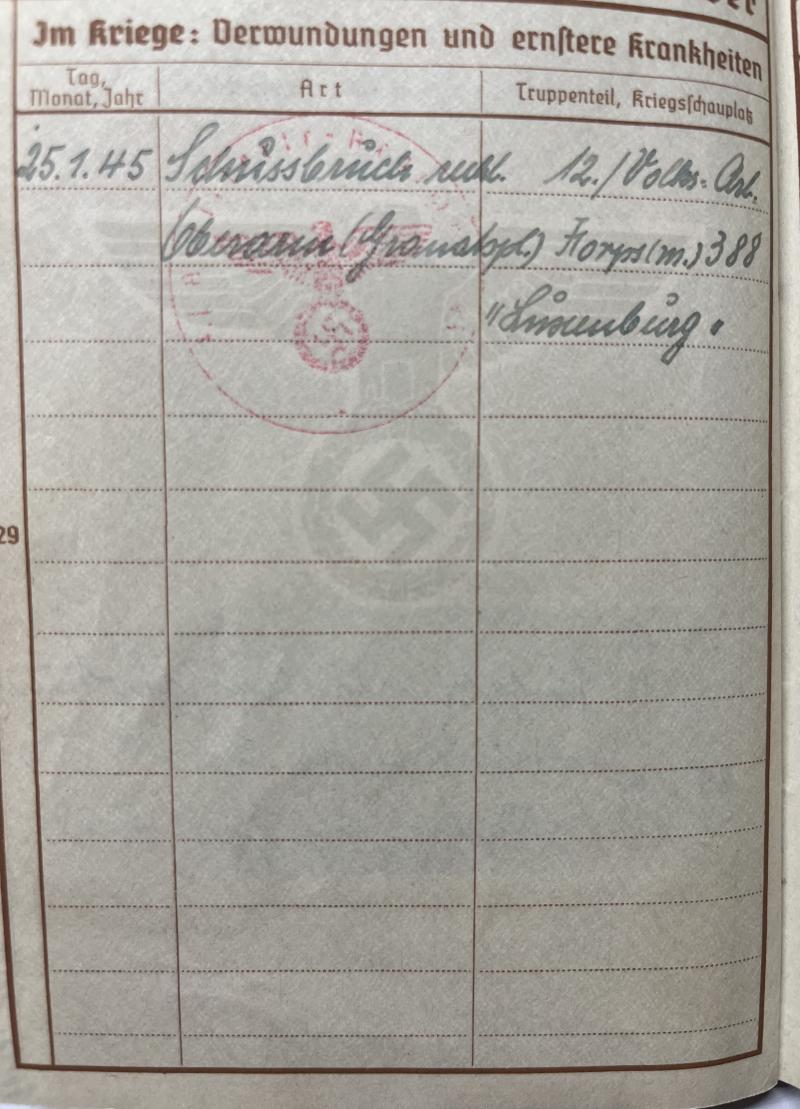 Im Kriege: Verwundungen und ernstere Krankheiten
Tag, Monat, Jahr
Art
Truppenteil, Kriegsschauplatz
25.1.45 Schussbruch recht. 12./Volks-Art.
Oberarm (Granatspl.) Korps (m.) 388
"Luxenburg"
29